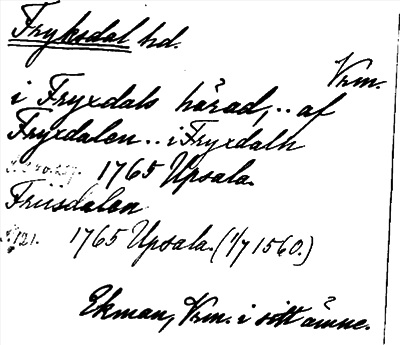 Fryksdal hd.
Vrm.
i Fryxdals härad, .. af
Fryxdalen .. i Fryxdaln
1765 Upsala.
Friisdalen
S. 121. 1765 Upsala. (1/7 1560.)
Ekman, Vrm. i sitt ämne.